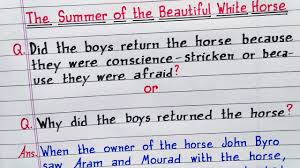 The Summer of the Beautiful White Horse
Q. Did the boys return the horse because
they were conscience-stricken or beca-
use they were afraid?
or
Q. Why did the boys returned the horse?
Ans. When the owner of the horse John Byro
saw Aram and Mourad with the horse,